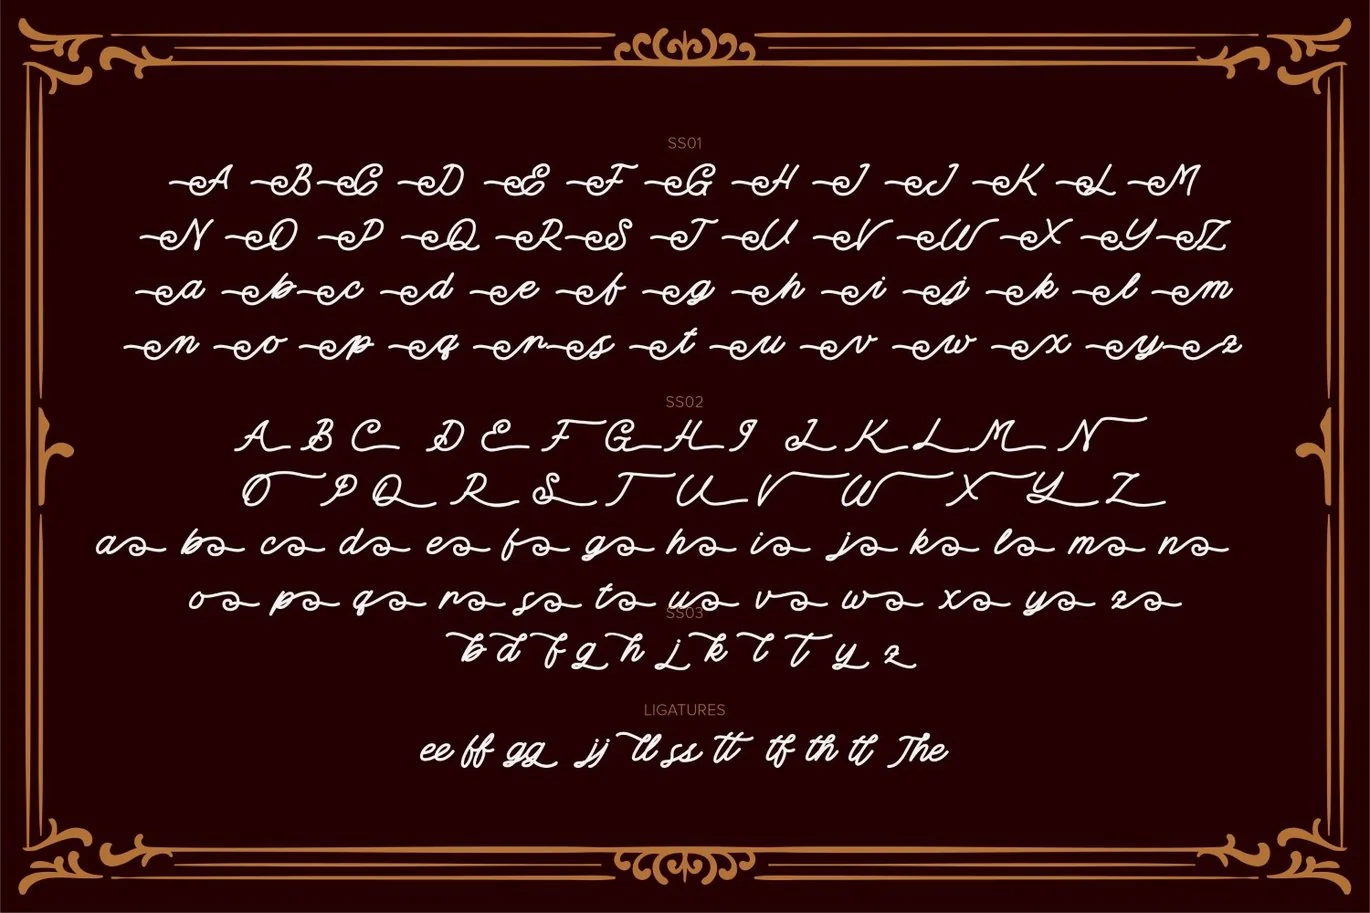 SS01
A B C D E F G H I J K L M
N O P Q R S T U V W X Y Z
a b c d e f g h i j k l m
n o p q r s t u v w x y z
SS02
A B C D E F G H I J K L M N
O P Q R S T U V W X Y Z
a b c d e f g h i j k l m n
o p q r s t u v w x y z
SS03
b d f g h j k l t y z
LIGATURES
ee ff gg jj ll ss tt tf th tl The